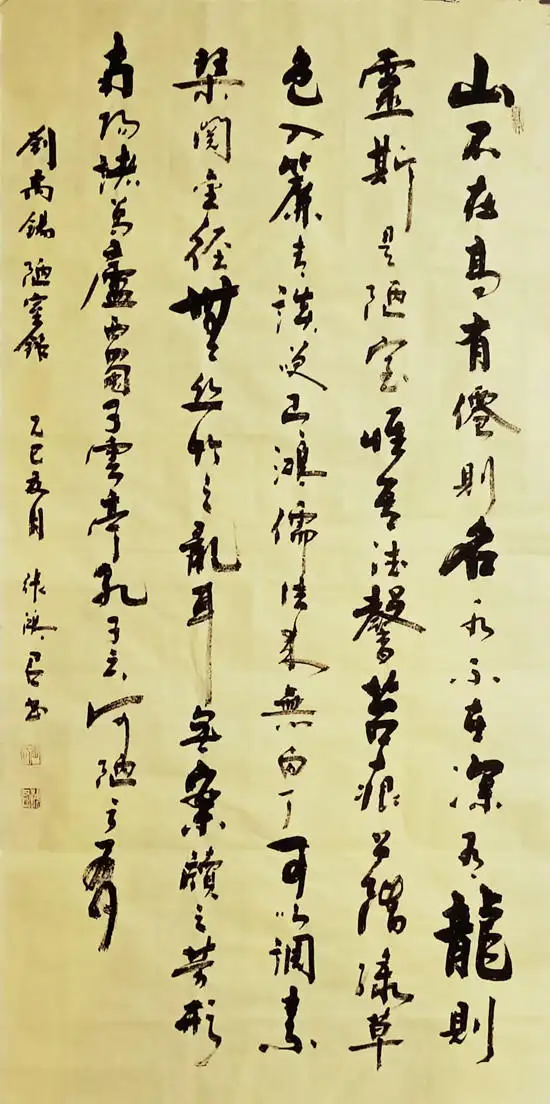 山不在高有僊則名水不在深有龍則
靈斯是陋室唯吾德馨苔痕上階綠草
色入簾青談笑有鴻儒往來無白丁可以調素
琴閱金經無絲竹之亂耳無案牘之勞形
南陽諸葛廬西蜀子雲亭孔子云何陋之有
劉禹錫陋室銘 乙巳五月 書